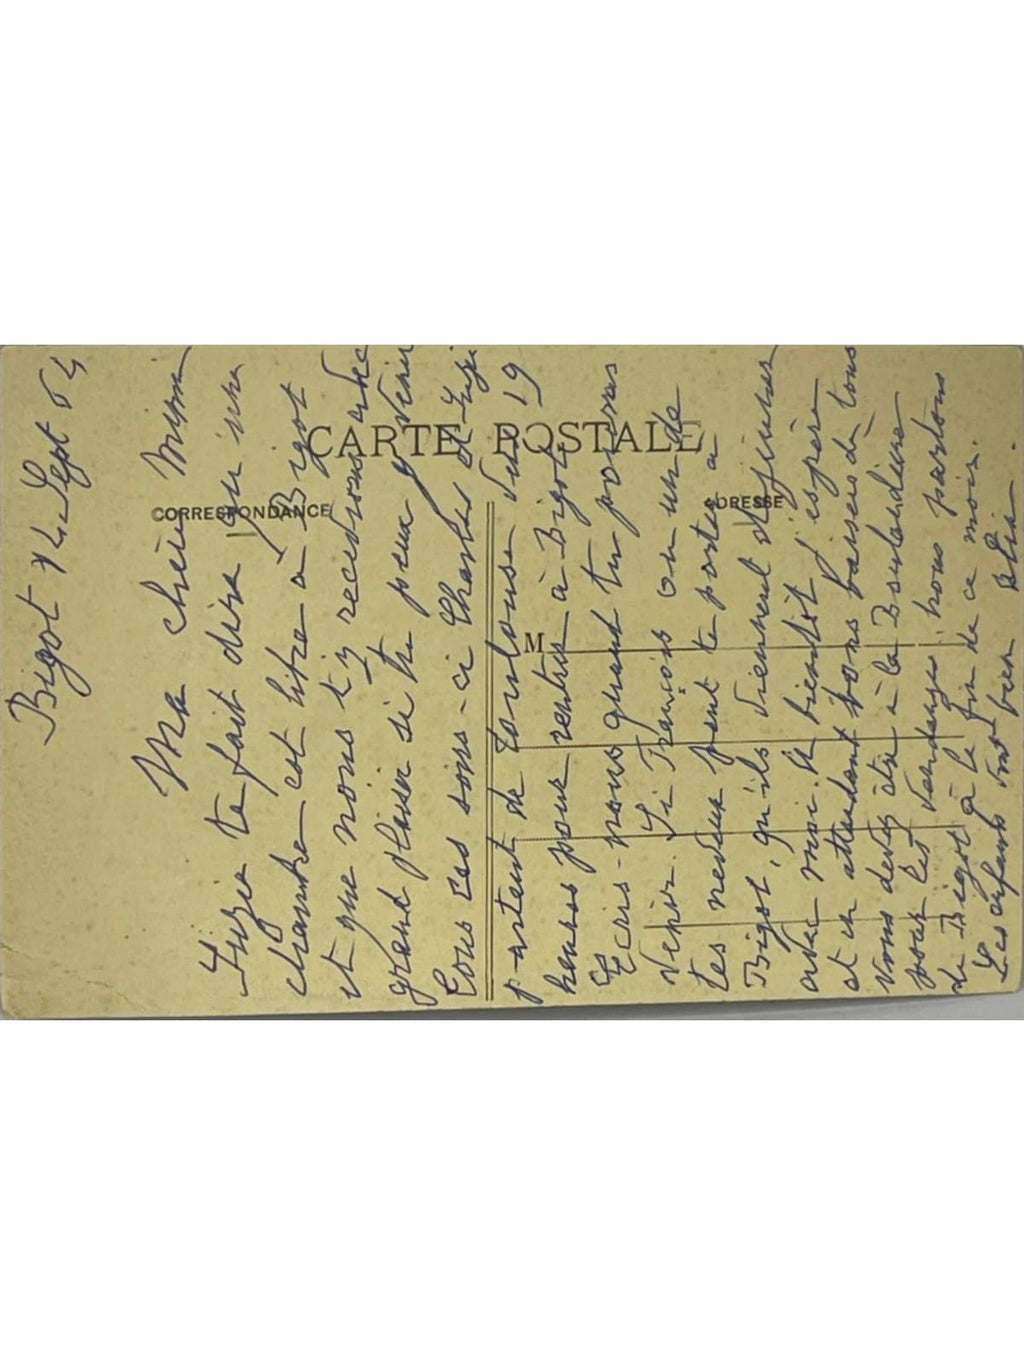 CARTE POSTALE
CORRESPONDANCE
ADRESSE
M
Bigot 12 Sept 54
Ma chère Mimi
Zuze te fait dire qu'une
chambre est libre à Bigot
et que nous t'y recevrons avec
grand plaisir si tu peux y venir
tous ces jours-ci Charles et Zuze
partent de Toulouse vers 19
heures pour rentrer à Bigot
Ecris-nous quand tu pourras
venir. Si François ou un de
tes neveux peut te porter à
Bigot, qu'ils viennent déjeuner
avec moi. A bientôt j'espère
et en attendant bons baisers à tous
Vous devez être à la
pour les vendanges, nous partons
de Bigot à la fin de ce mois.
Les enfants vont bien